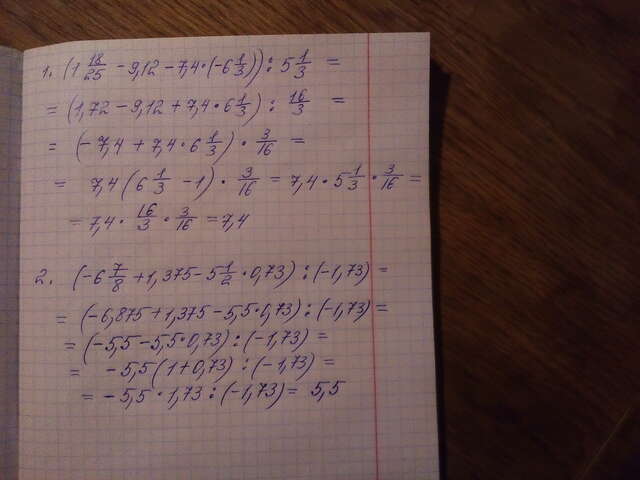 1. (1 18/25 - 9,12 - 7,4 · (-6 1/3)) : 5 1/3 =
= (1,72 - 9,12 + 7,4 · 6 1/3) : 16/3 =
= (-7,4 + 7,4 · 6 1/3) · 3/16 =
= 7,4 (6 1/3 - 1) · 3/16 = 7,4 · 5 1/3 · 3/16 =
= 7,4 · 16/3 · 3/16 = 7,4
2. (-6 7/8 + 1,375 - 5 1/2 · 0,73) : (-1,73) =
= (-6,875 + 1,375 - 5,5 · 0,73) : (-1,73) =
= (-5,5 - 5,5 · 0,73) : (-1,73) =
= -5,5 (1 + 0,73) : (-1,73) =
= -5,5 · 1,73 : (-1,73) = 5,5